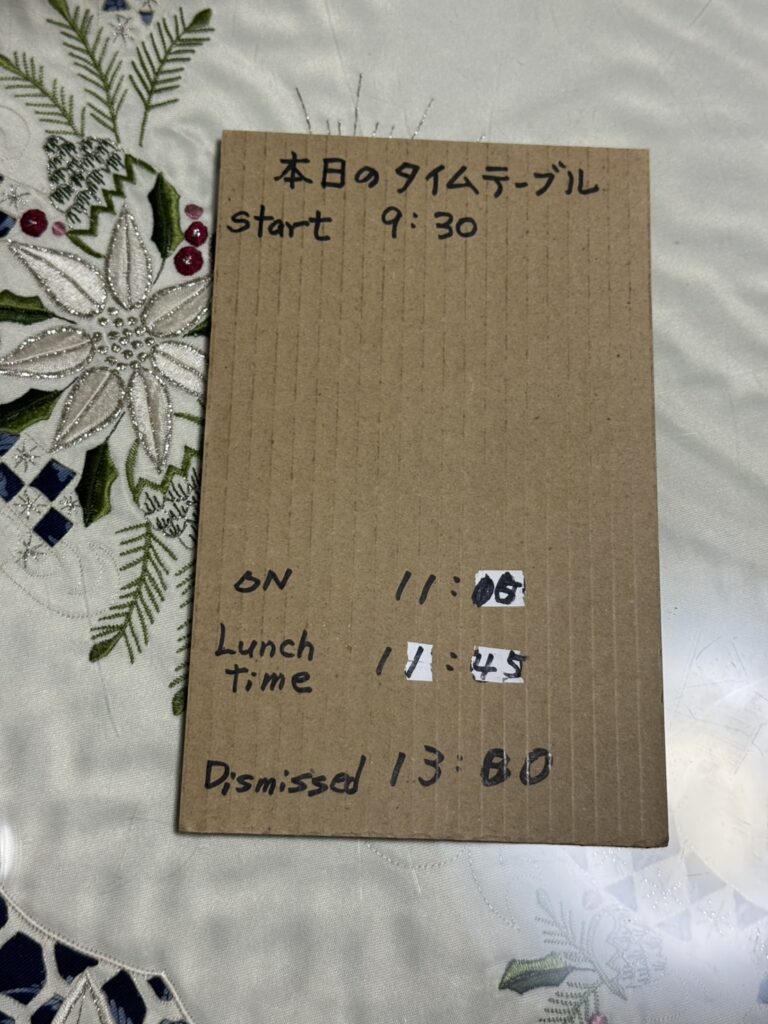 本日のタイムテーブル
start 9:30
ON 11:
Lunch time 11:45
Dismissed 13: